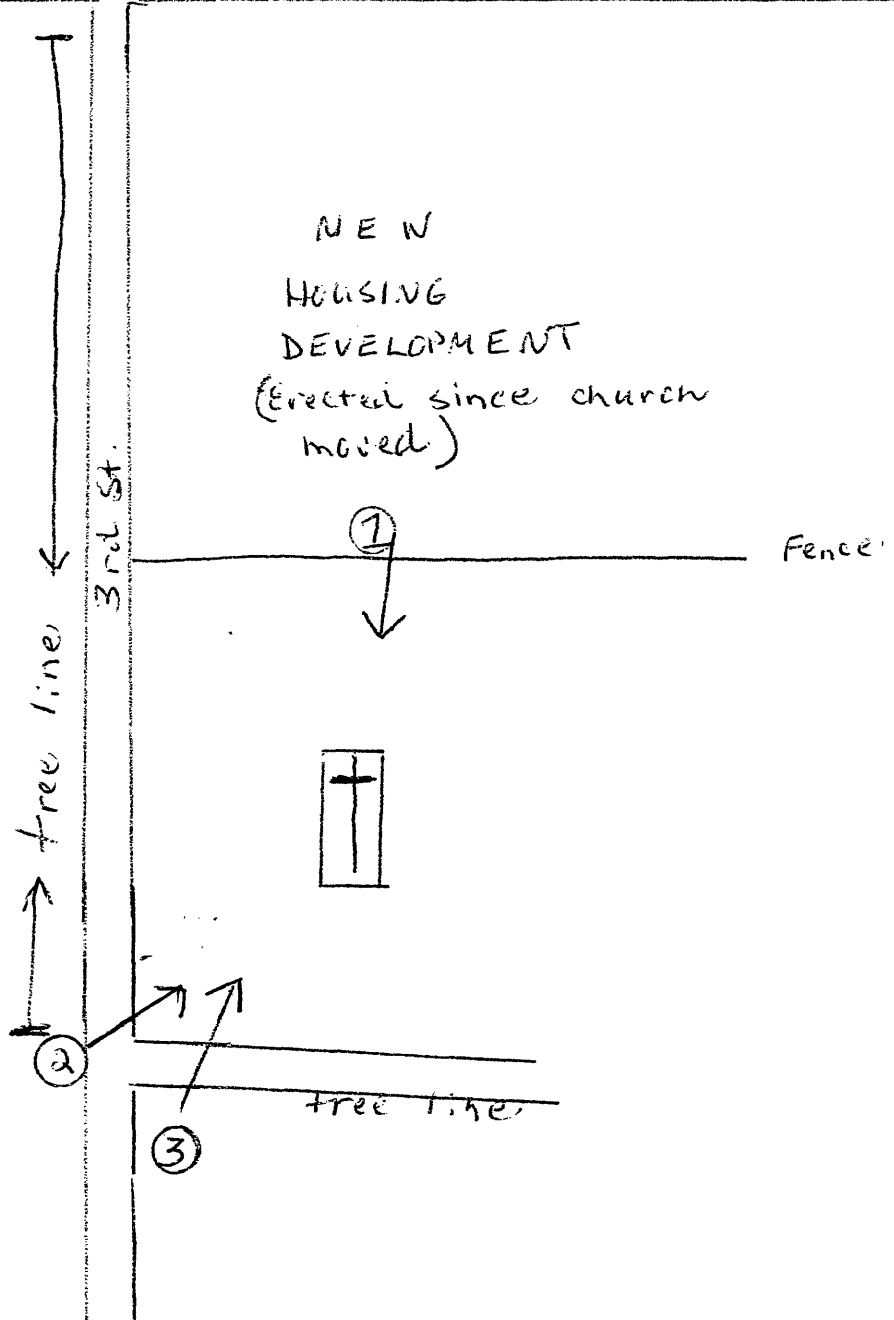 NEW
HOUSING
DEVELOPMENT
(Erected since church
moved)
3rd St.
1
Fence
tree line
2
tree line
3